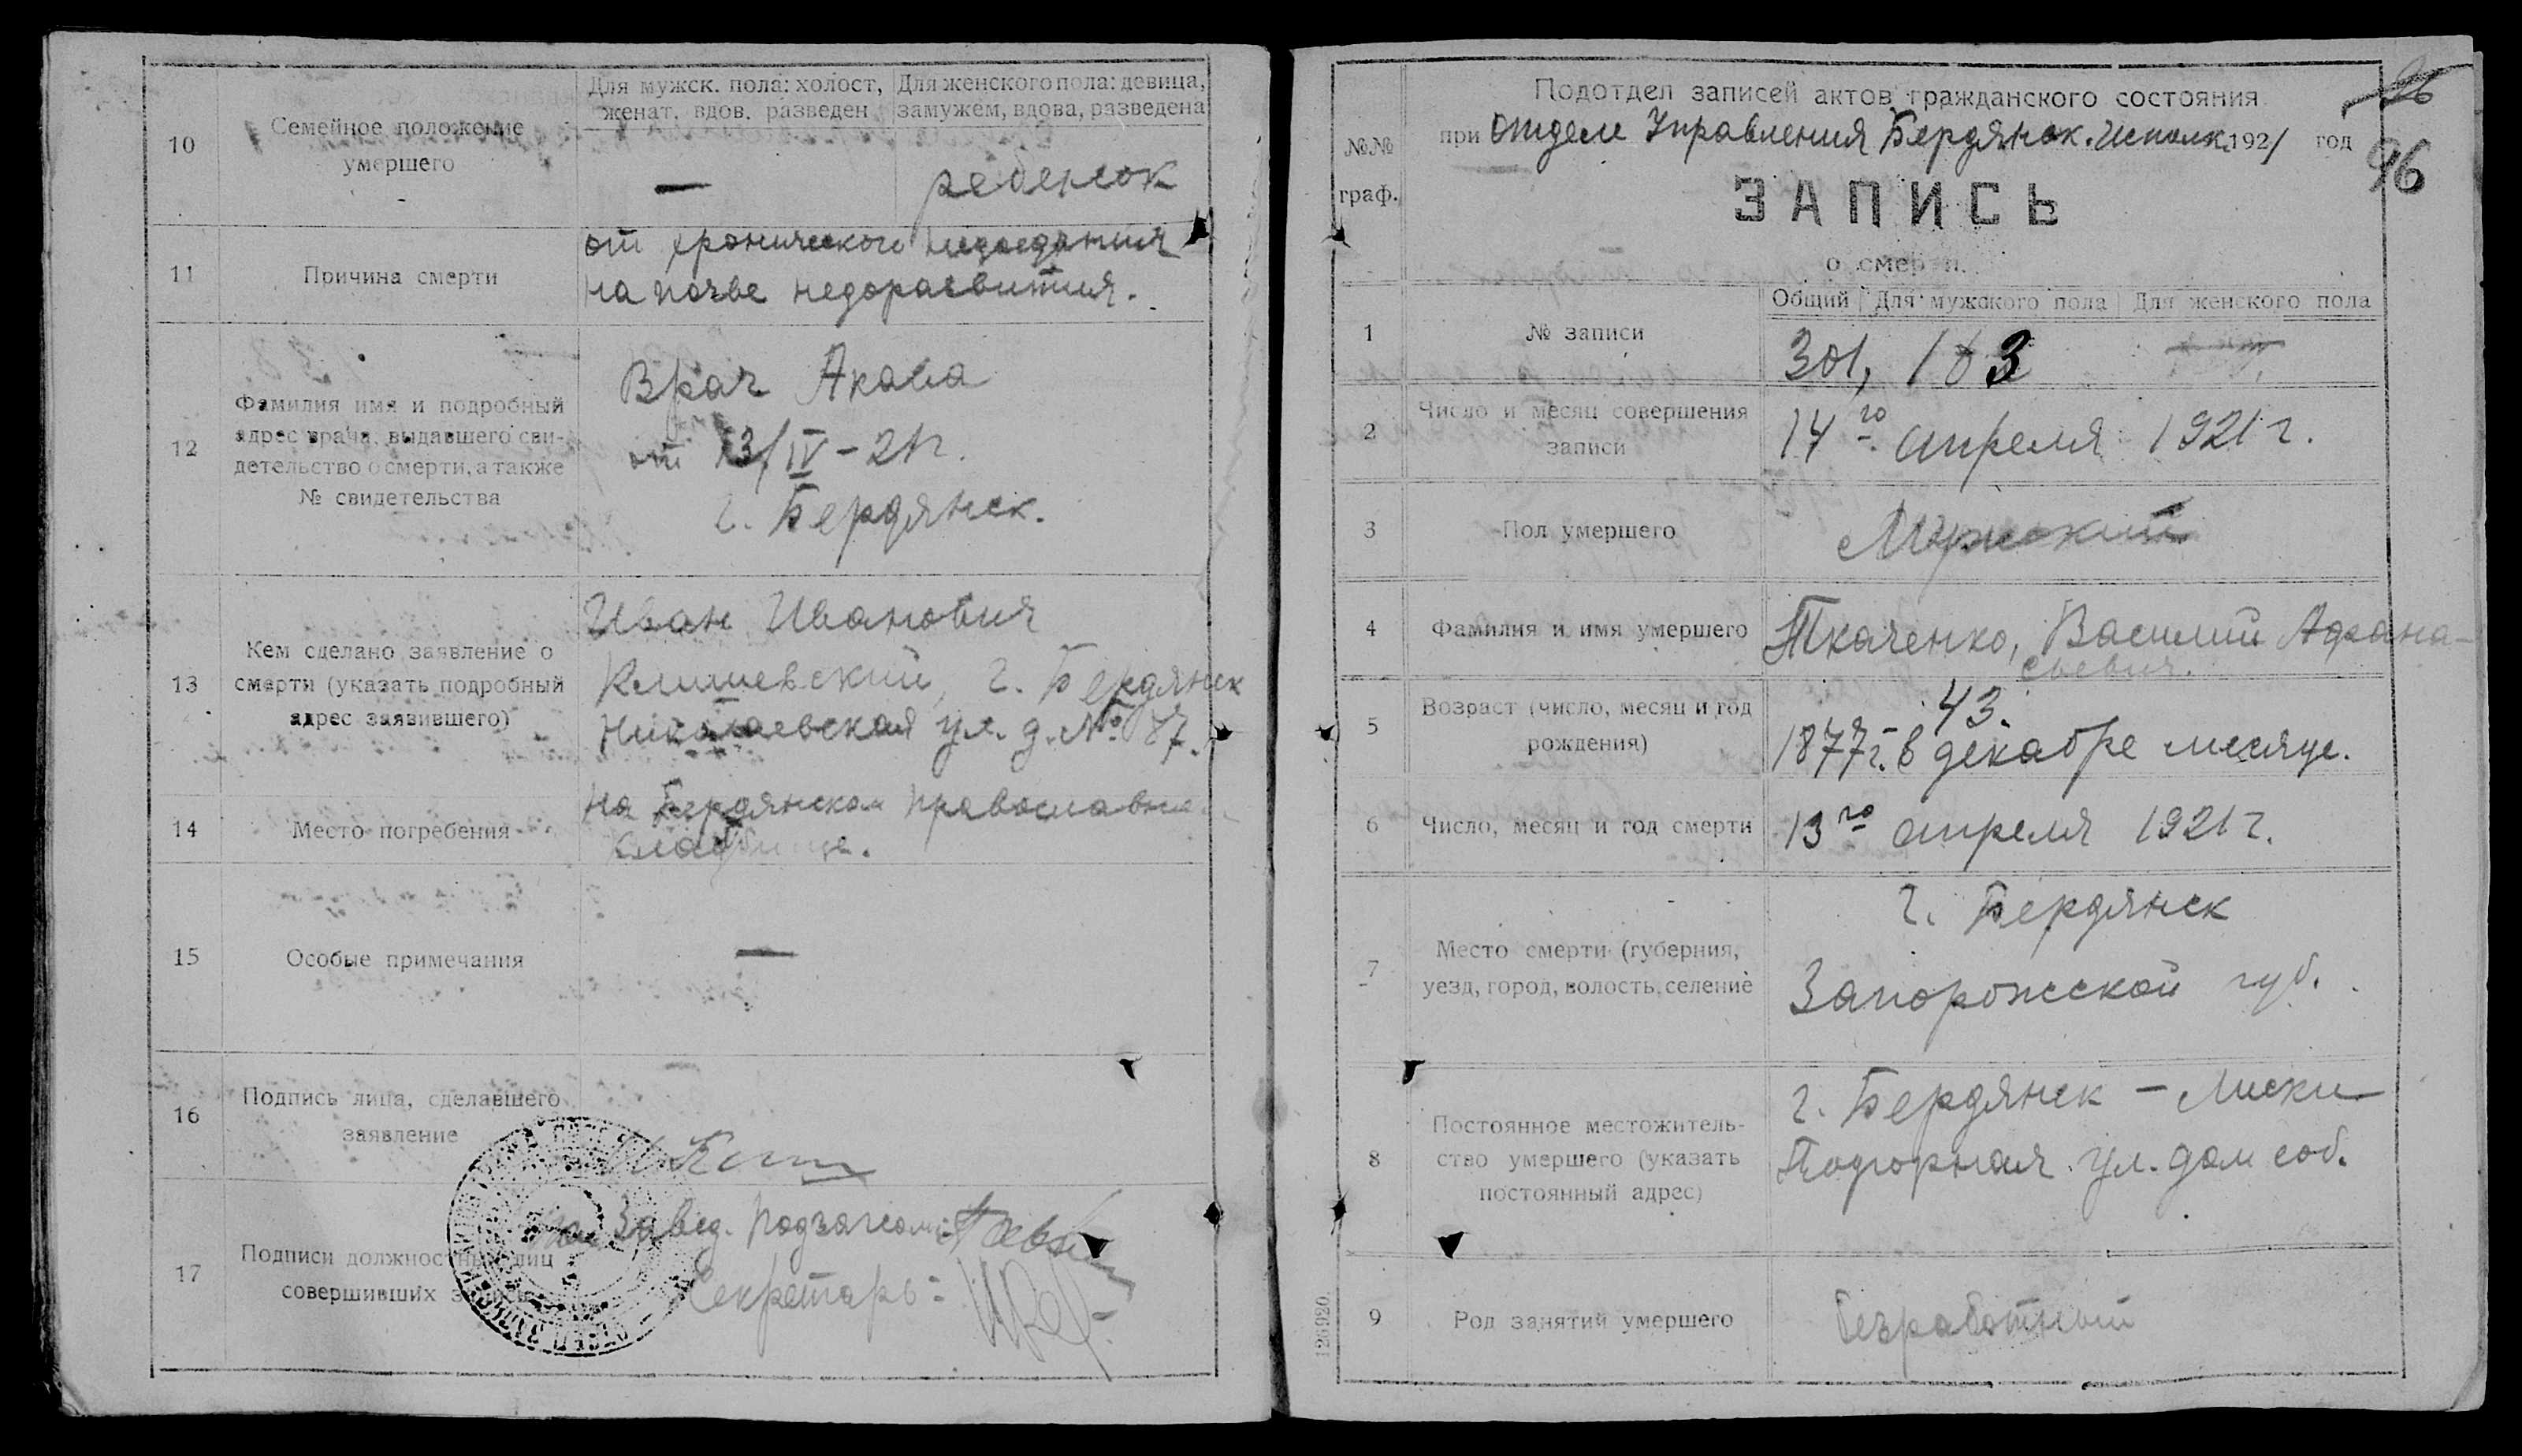 10
Семейное положение
умершего
Для мужск. пола: холост,
женат. вдов. разведен
Для женского пола: девица,
замужем, вдова, разведена
—
ребенок
11
Причина смерти
от хронического недоедания
на почве недоразвития.
12
Фамилия имя и подробный
адрес врача, выдавшего сви-
детельство о смерти, а также
№ свидетельства
Врач Акава
от 13/IV – 21 г.
г. Бердянск.
13
Кем сделано заявление о
смерти (указать подробный
адрес заявившего)
Иван Иванович
г. Бердянск
Николаевская ул. д. № 87.
14
Место погребения
На Бердянском православном
кладбище.
15
Особые примечания
—
16
Подпись лица, сделавшего
заявление
17
Подписи должностных лиц
совершивших запись
Завед. Подзагсом:
Секретарь:
96
96
№№
граф.
Подотдел записей актов гражданского состояния
при Отделе Управления Бердянск. Исполк. 1921 год
ЗАПИСЬ
о смерти.
Общий
Для мужского пола
Для женского пола
1
№ записи
301, 163
2
Число и месяц совершения
записи
14го апреля 1921 г.
3
Пол умершего
Мужской
4
Фамилия и имя умершего
Ткаченко, Василий Афана-
сьевич.
5
Возраст (число, месяц и год
рождения)
43.
1877 г. в декабре месяце.
6
Число, месяц и год смерти
13го апреля 1921 г.
7
Место смерти (губерния,
уезд, город, волость, селение
г. Бердянск
Запорожской губ.
8
Постоянное местожитель-
ство умершего (указать
постоянный адрес)
г. Бердянск – Лиски
Подгорная ул. дом соб.
9
Род занятий умершего
безработный
126920.